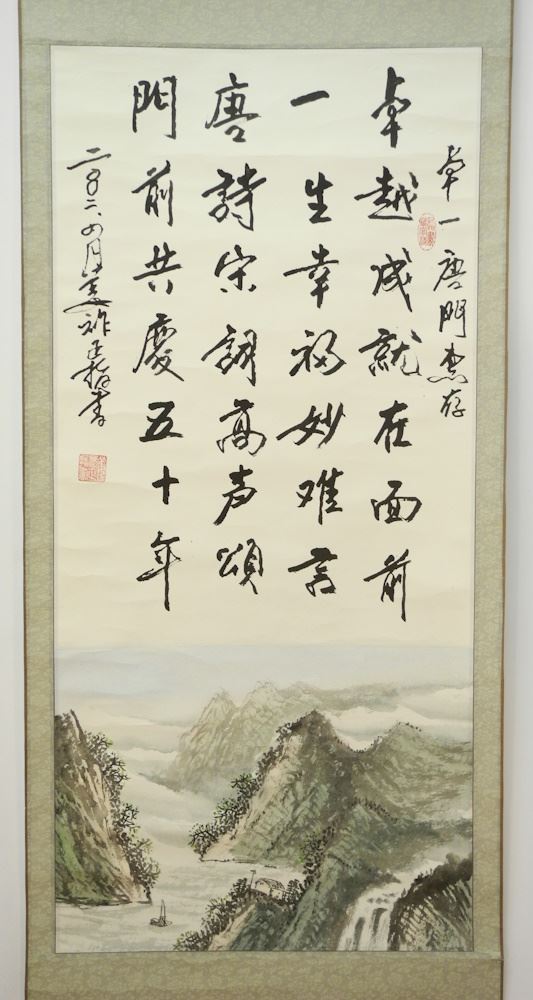 卓一唐門惠存
卓越成就在面前
一生幸福妙难言
唐詩宋詞高声頌
門前共慶五十年
二〇〇二.四月姜祚正指书